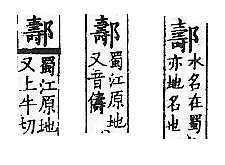 水名在蜀
亦地名也
蜀江原地
又音儔
蜀江原地
又上牛切